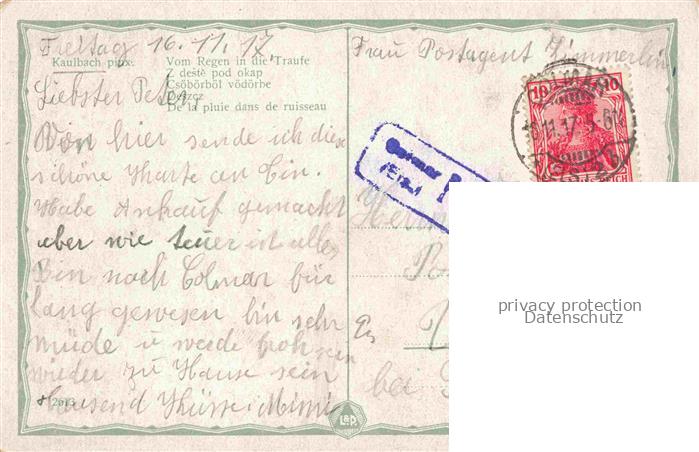 Freitag 16.11.17
Kaulbach pinx.
Vom Regen in die Traufe
Z deště pod okap
Csöbörböl vödörbe
Deszcz
De la pluie dans de ruisseau
Liebster Peter
Von hier sende ich dies
schöne Kharte an Ein.
Habe Ankauf gemacht
aber wie teuer ist alles
Bin nach Colmar für
lang gewesen bin sehr
müde u werde froh sein
wieder zu Hause sein
tausend Khüsse Mimi
Frau Postagent Zimmerlin
10 10
11.17.5-6
bei
L&P
privacy protection
Datenschutz